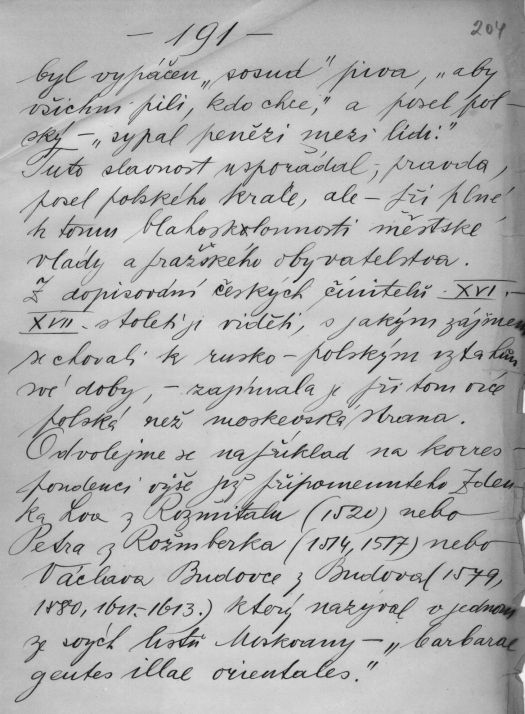 — 191 —
204
byl vypáčen „sosud" piva, „aby
všichni pili, kdo chce," a posel pol-
ský — „sypal peněži mezi lidi."
Tuto slavnost uspořádal, pravda,
posel polského krále, ale — při plné
k tomu blahosklonnosti městské
vlády a pražského obyvatelstva.
Z dopisování českých činitelů XVI.—
XVII. století je viděti, s jakým zájmem
se chovali k rusko-polským vztahům
své doby, — zajímala je při tom více
polská než moskevská strana.
Odvolejme se například na korres-
pondenci výše již připomenuteho Zden-
ka Lva z Rožmitalu (1520) nebo
Petra z Rožmberka (1514, 1517) nebo
Václava Budovce z Budova (1579,
1880, 1611-1613.) který nazýval v jednom
ze svých listů Moskvany — „barbarae
gentes illae orientales."